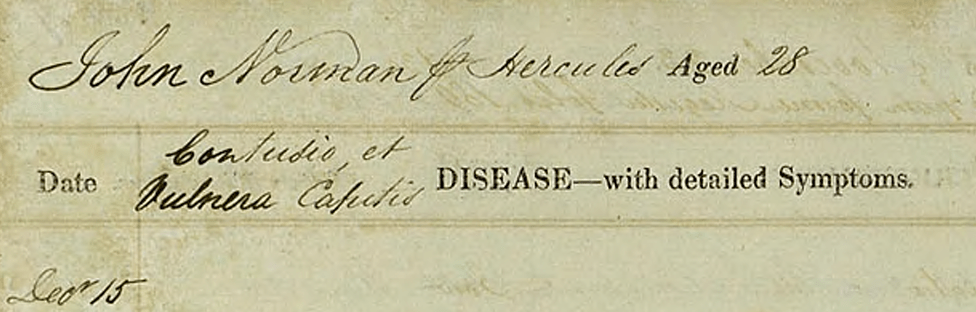 John Norman pr Hercules Aged 28
Contusio, et
Date Vulnera Capitis DISEASE—with detailed Symptoms.
Decr 15